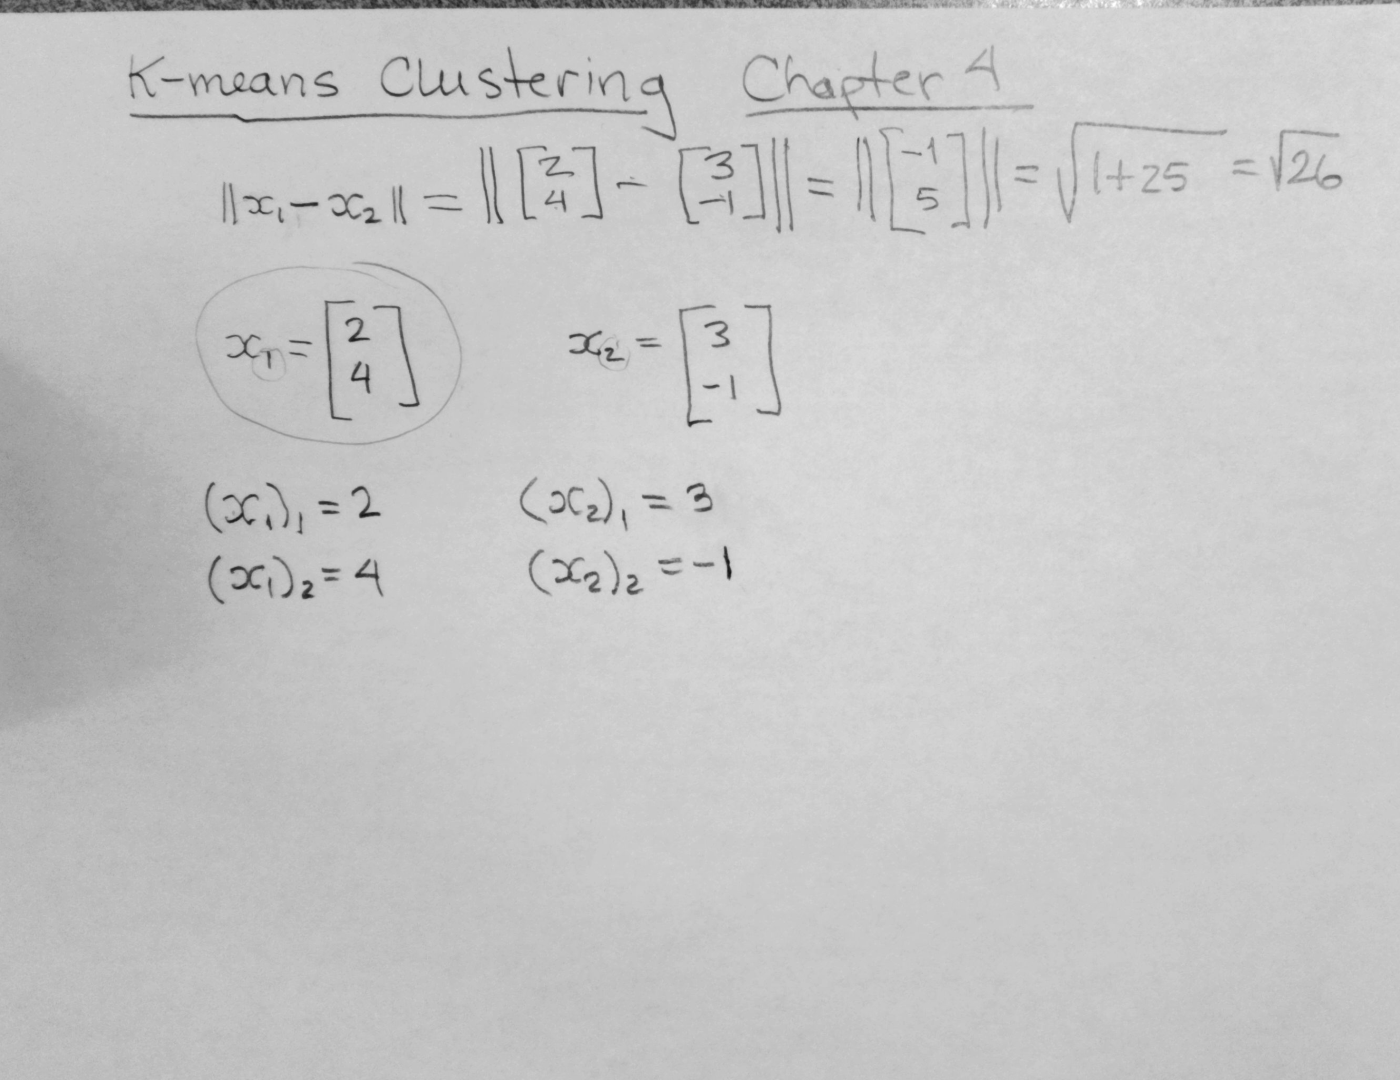 K-means Clustering Chapter 4
||x₁ - x₂|| = ||[2 4] - [3 -1]|| = ||[-1 5]|| = √(1+25) = √26
x₁ = [2 4] x₂ = [3 -1]
(x₁)₁ = 2 (x₂)₁ = 3
(x₁)₂ = 4 (x₂)₂ = -1